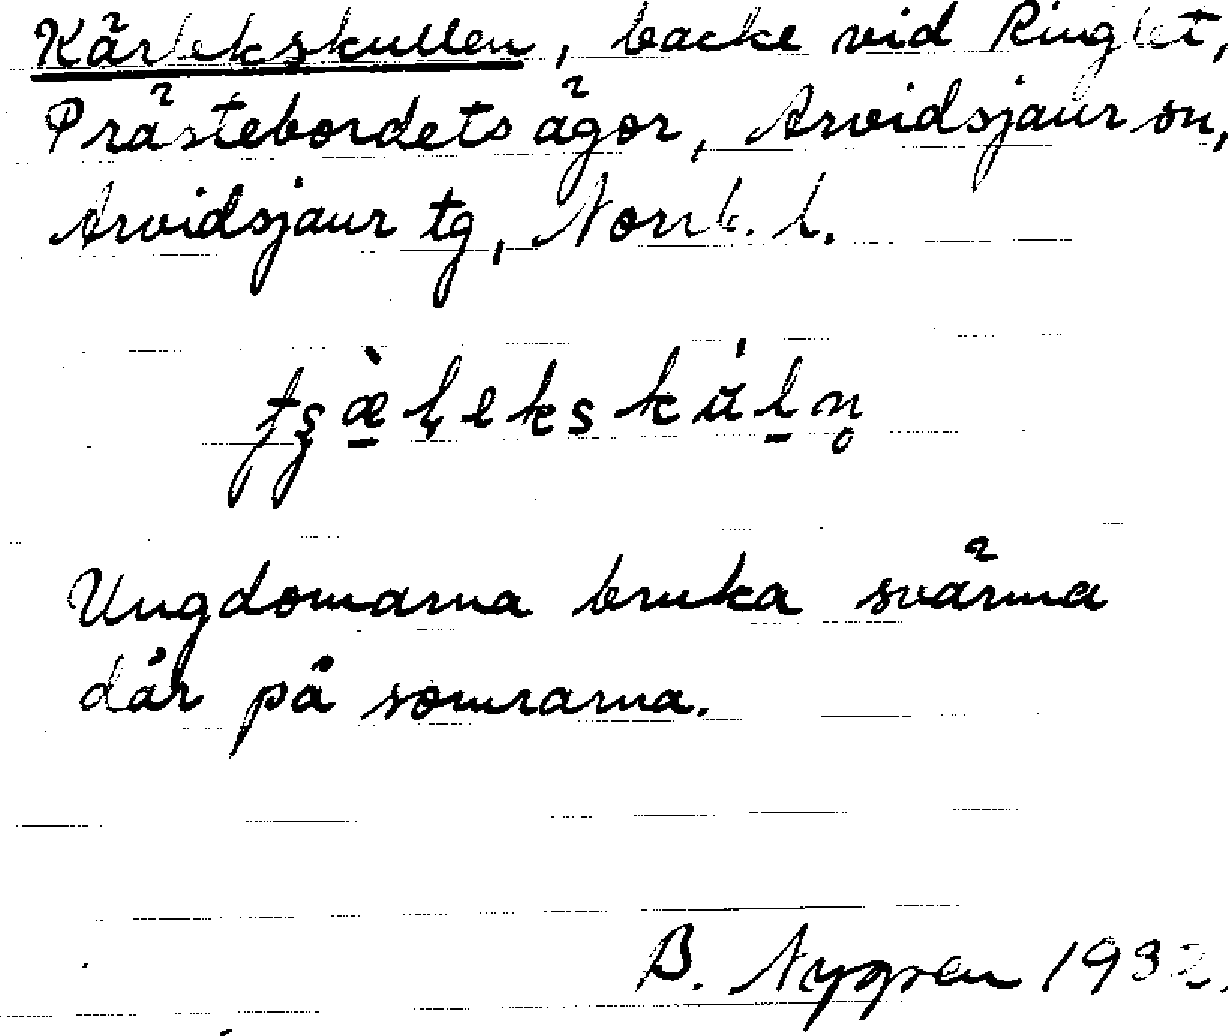 Kärlekskullen, backe vid Ringlet,
Prästebordets ägor, Arvidsjaur sn,
Arvidsjaur tg, Norrb. l.
Ungdomarna bruka svärma
där på somrarna.
B. Nygren 1932.